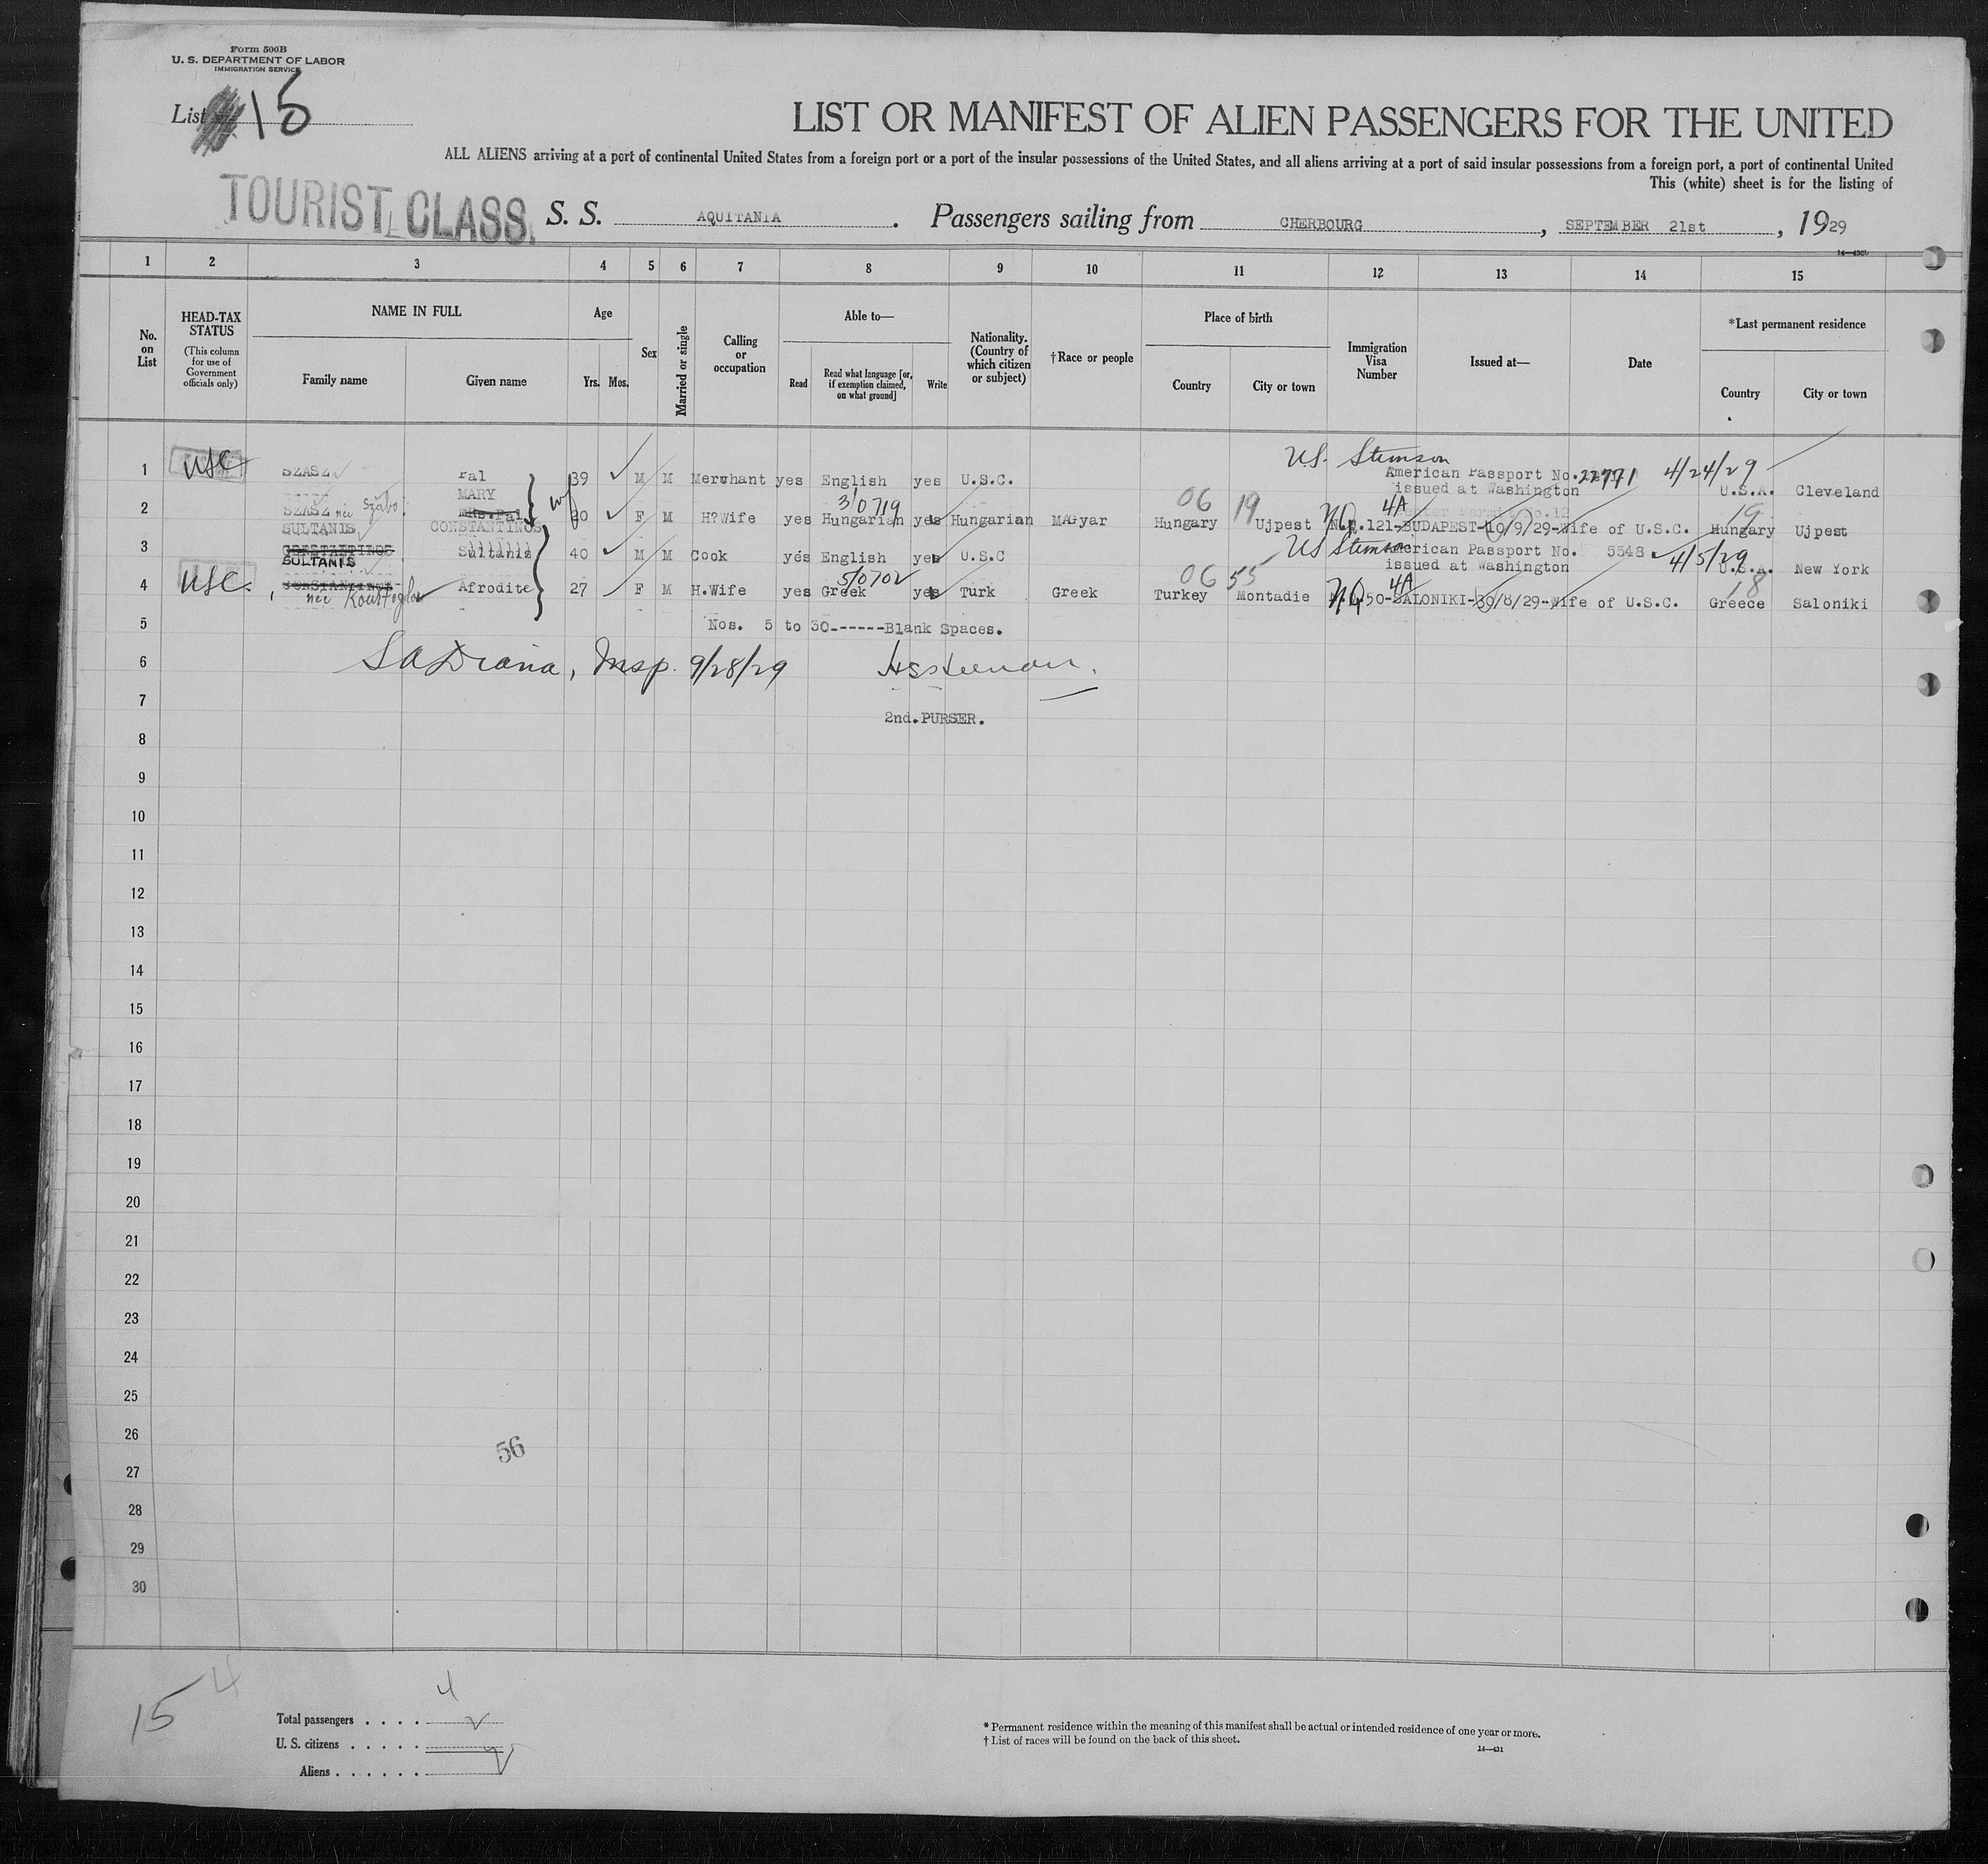 Form 500B
U. S. DEPARTMENT OF LABOR
IMMIGRATION SERVICE
List 15
LIST OR MANIFEST OF ALIEN PASSENGERS FOR THE UNITED
ALL ALIENS arriving at a port of continental United States from a foreign port or a port of the insular possessions of the United States, and all aliens arriving at a port of said insular possessions from a foreign port, a port of continental United
This (white) sheet is for the listing of
TOURIST CLASS. S. S. AQUITANIA. Passengers sailing from CHERBOURG, SEPTEMBER 21st, 1929
1 2 3 4 5 6 7 8 9 10 11 12 13 14 15
No. on List
HEAD-TAX STATUS
(This column for use of Government officials only)
NAME IN FULL
Family name Given name
Age
Yrs. Mos.
Sex
Married or single
Calling or occupation
Able to—
Read Read what language [or, if exemption claimed, on what ground] Write
Nationality. (Country of which citizen or subject)
†Race or people
Place of birth
Country City or town
Immigration Visa Number
Issued at—
Date
*Last permanent residence
Country City or town
U.S. Stimson
1 USC SZASZ Pal 39 M M Merchant yes English yes U.S.C. American Passport No. 22771 4/24/29
issued at Washington U.S.A. Cleveland
MARY
31 0719 06 19 4A 19
2 SZASZ née Szabo Mrs. Pal wf F M H?Wife yes Hungarian yes Hungarian MAGyar Hungary Ujpest N.Q.121-BUDAPEST-10/9/29-Wife of U.S.C. Hungary Ujpest
SULTANIS CONSTANTINOS
3 CONSTANTINOS Sultanis 40 M M Cook yes English yes U.S.C US Stimson American Passport No. 5548 4/5/29
issued at Washington U.S.A. New York
SULTANIS
5/0702 06 55 4A 18
4 USC. CONSTANTINOS Afrodite 27 F M H.Wife yes Greek yes Turk Greek Turkey Montadie N.Q.50-SALONIKI-30/8/29-Wife of U.S.C. Greece Saloniki
née
5 Nos. 5 to 30------Blank Spaces.
6 Insp. 9/28/29
7
2nd. PURSER.
8
9
10
11
12
13
14
15
16
17
18
19
20
21
22
23
24
25
26
56
27
28
29
30
15 4
4
Total passengers . . . .
U. S. citizens . . . . .
Aliens . . . . . .
* Permanent residence within the meaning of this manifest shall be actual or intended residence of one year or more.
† List of races will be found on the back of this sheet.
14—431